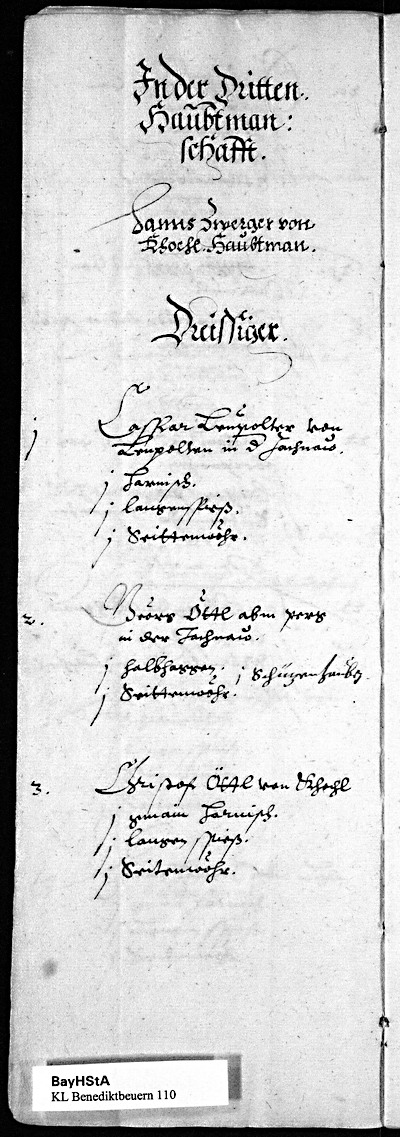 In der Dritten.
Haubtman:
schafft.
Hanns Zwerger von
Khochl. Haubtman.
Dreissiger.
1 Casspar Leupolter von
Leupolten in d Jachnaw.
j Harnisch.
j langenspieß.
j Seittenwöhr.
2. Geörg Öttl abm perg
in der Jachnaw.
j halbhaggen. j Schüzenhauben.
j Seittenwöhr.
3. Christof Öttl von Khochl
j gmain Harnisch.
j langen spieß.
j Seitenwöhr.
BayHStA
KL Benediktbeuern 110